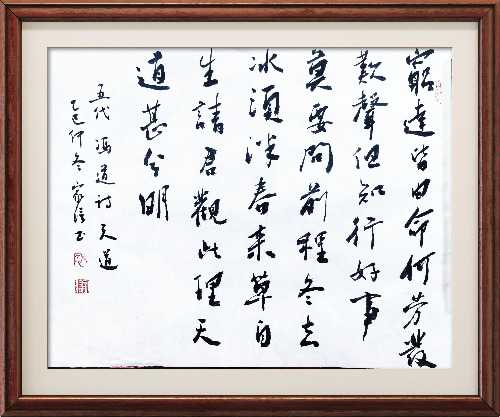 窮達皆由命何勞發
歎聲但知行好事
莫要問前程冬去
冰須泮春来草自
生請君觀此理天
道甚分明
五代 馮道詩 天道
乙巳仲冬家信书